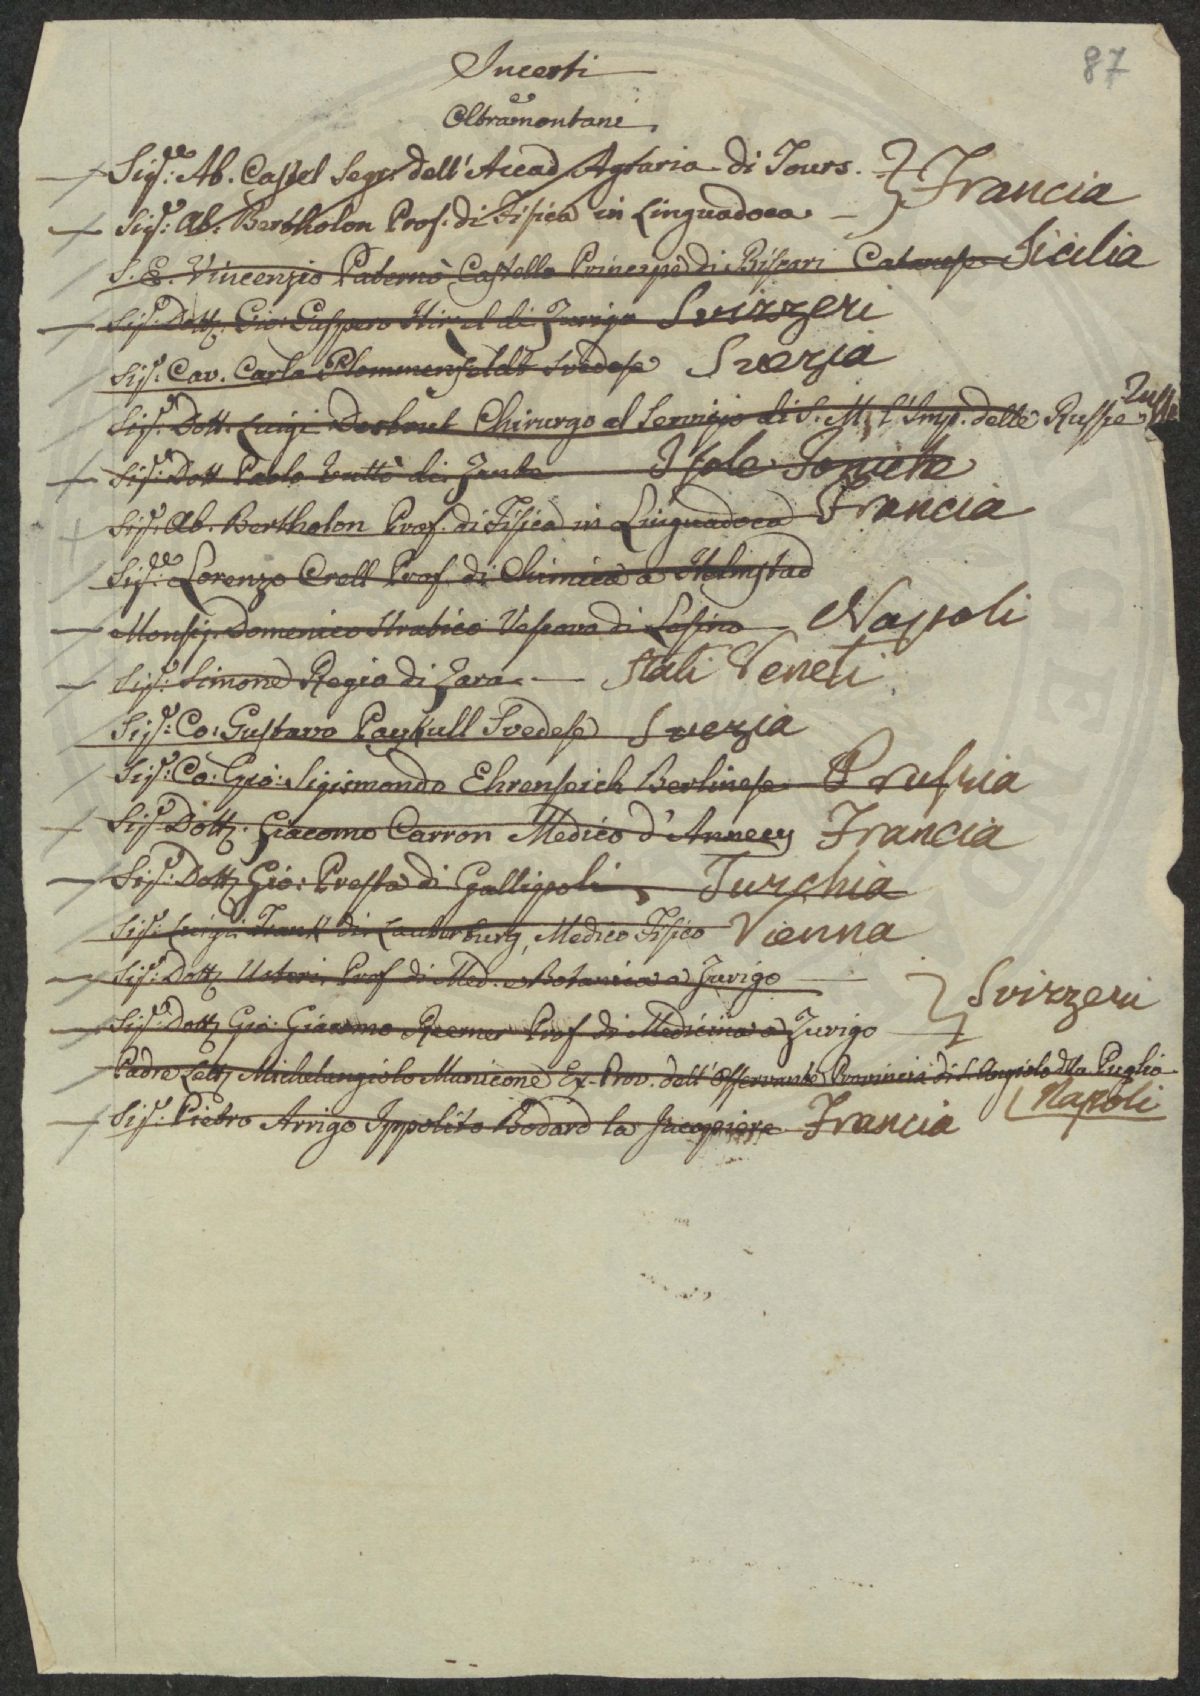 87
Incerti
Oltramontani
Sig.r: Ab. Castel Segr. dell'Accad Agraria di Tours. Francia
Sig.r: Ab. Bertholon Prof. di Fisica in Linguadoca
S. E. Vincenzio Paternò Castello Principe di Biscari Catanese Sicilia
Sig.r: Dott. Gio: Gaspero Hirzel di Zurigo Svizzeri
Sig.r: Cav. Carlo Svedese Svezia
Sig.r: Dott. Luigi Chirurgo al Servizio di S. M. l'Imp. delle Russie
Sig.r: Dott Paolo di Zante Isole Joniche
Sig.r: Ab. Bertholon Prof. di Fisica in Linguadoca Francia
Sig.r: Lorenzo Crell Prof. di Chimica a Helmstad
Monsig. Domenico Stratico Vescovo di Lesina Napoli
Sig.r: Simone Regio di Zara Stati Veneti
Sig.r: Co: Gustavo Paykull Svedese Svezia
Sig.r: Co: Gio: Sigismondo Ehrenreich Berlinese Prussia
Sig.r Dott. Giacomo Carron Medico d'Annecy Francia
Sig.r: Dott Gio: Presta di Gallipoli Turchia
Sig.r: Luigi Frank di Lauterburg, Medico Fisico Vienna
Sig.r: Dott Usteri Prof di Med. e Botanica a Zurigo Svizzeri
Sig.r: Dott Gio: Giacomo Roemer Prof di Medicina a Zurigo
Padre Lett. Michelangiolo Manicone Ex-Prov. dell'Osservante Provincia di S. Angiolo della Puglia
Napoli
Sig.r: Pietro Arrigo Ippolito Bodard la Francia